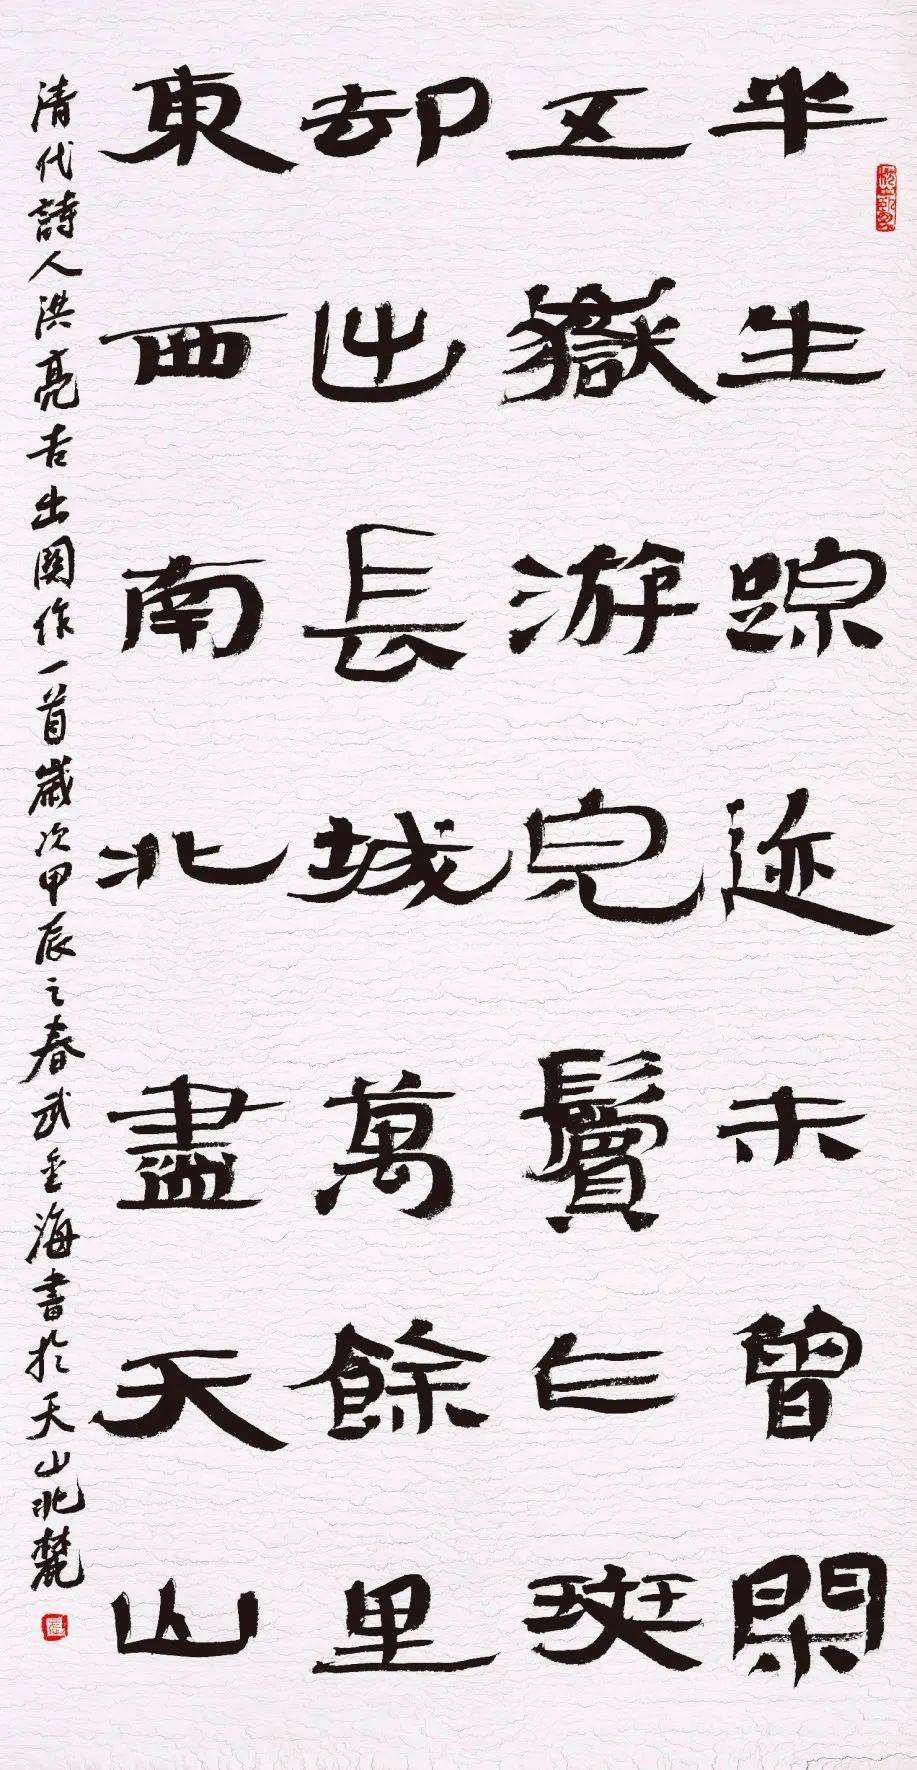 半生踪迹未曾閑
五嶽游完鬢乍斑
却出長城萬餘里
東西南北盡天山
清代詩人洪亮吉出關作一首歲次甲辰之春武金海書於天山北麓